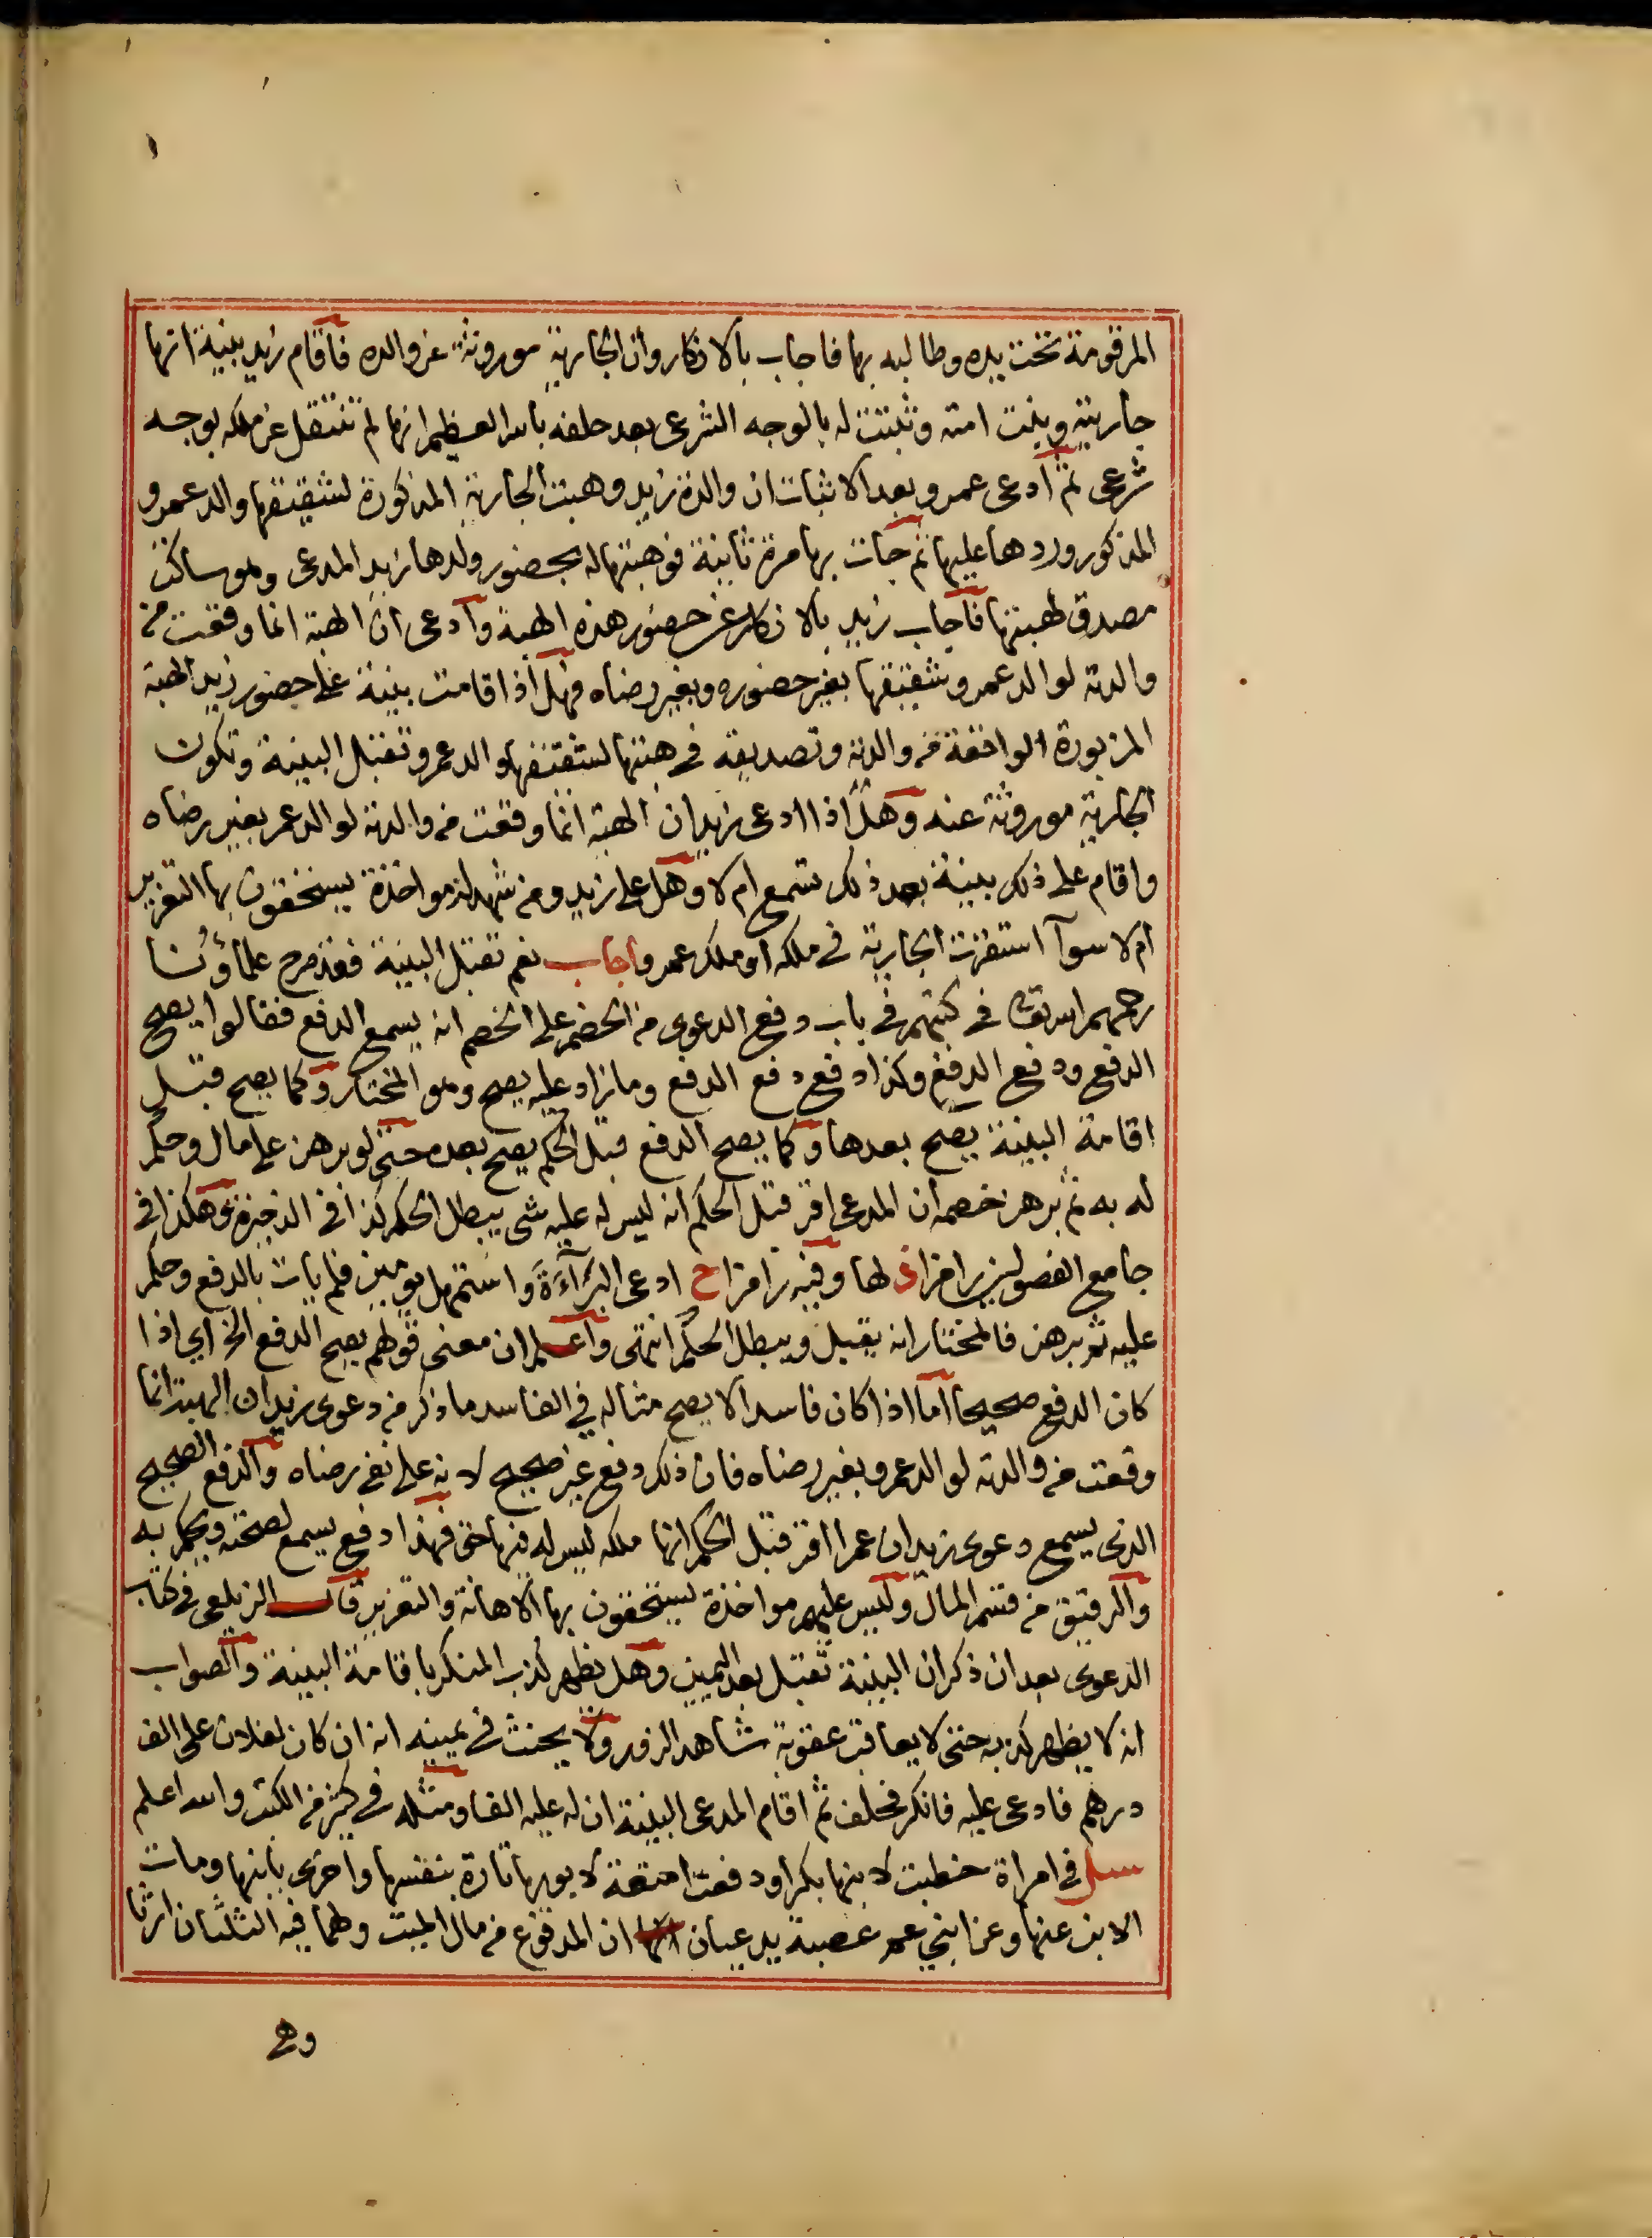 المرقومة تحت يده وطالبه بها فاجاب بالانكار وأن الجارية موروثة عن والده فأقام زيد بينة انها
جاريته وبنت امته وثبتت له بالوجه الشرعى بعد حلفه بالله العظيم انها لم تنتقل عن ملكه بوجه
شرعى ثم ادعى عمرو بعد الاثبات ان والدة زيد وهبت الجارية المذكورة لشقيقها والد عمرو
المذكور وردها عليها ثم جات بها مرة ثانية فوهبتها له بحضور ولدها زيد المدعى وهو ساكت
مصدق لهبتها فأجاب زيد بالانكار عن حضور هذه الهبة وادعى ان الهبة انما وقعت من
والدته لوالد عمرو شقيقها بغير حضوره وبغير رضاه فهل اذا قامت بينة على حضور زيد الهبة
المزبورة الواقعة من والدته وتصديقه في هبتها لشقيقها والد عمرو تقبل البينة وتكون
الجارية موروثة عنه وهل اذا ادعى زيد ان الهبة انما وقعت من والدته لوالد عمر بغير رضاه
واقام على ذلك بينة بعد ذلك تسمع ام لا وهل على زيد ومن شهد له مواخذة يستحقون بها التعزير
ام لا سوآ استقرت الجارية في ملكه او ملك عمرو اجاب نعم تقبل البينة فقد صرح علماؤنا
رحمهم الله تعالى في كتبهم في باب دفع الدعوى من الخصم على الخصم انه يسمع الدفع فقالوا يصح
الدفع ودفع الدفع وكذا دفع دفع الدفع وما زاد عليه يصح وهو المختار وكما يصح قبل
اقامة البينة يصح بعدها وكما يصح الدفع قبل الحكم يصح بعده حتى لو برهن على مال وحكم
له به ثم برهن خصمه ان المدعى اقر قبل الحكم انه ليس له عليه شى يبطل الحكم كذا في الذخيرة وهكذا في
جامع الفصولين رامزا لها وفيه رامزا ح ادعى البرآءة واستمهل يومين فلم يات بالدفع وحكم
عليه ثم برهن فالمختار انه يقبل ويبطل الحكم انتهى واعلم ان معنى قولهم يصح الدفع الخ اي اذا
كان الدفع صحيحا اما اذا كان فاسدا لا يصح مثاله في الفاسد ما ذكر من دعوى زيد ان الهبة انما
وقعت من والدته لوالد عمرو بغير رضاه فان ذلك دفع غير صحيح لانه على نفى رضاه والدفع الصحيح
الذى يسمع دعوى زيد ان عمرا اقر قبل الحكم انها ملكه ليس له فيها حق فهذا دفع يسمع لصحته ويحكم به
والرقيق من قسم المال وليس عليهم مواخذة يستحقون بها الاهانة والتعزير قال الزيلعى في كتاب
الدعوى بعد ان ذكر ان البينة تقبل بعد اليمين وهل يظهر كذب المنكر باقامة البينة والصواب
انه لا يظهر كذبه حتى لا يعاقب عقوبة شاهد الزور ولا يحنث في يمينه انه ان كان لفلان على الف
درهم فادعى عليه فانكر فحلف ثم اقام المدعى البينة ان له عليه الفا ومثله في كثير من الكتب والله اعلم
سئل في امراة خطبت لابنها بكرا ودفعت امتعة لابويها تارة بنفسها واخرى بابنها ومات
الابن عنها وعن ابني عم عصبة يدعيان ان المدفوع من مال الميت ولهما فيه الثلثان ارثا
وهى